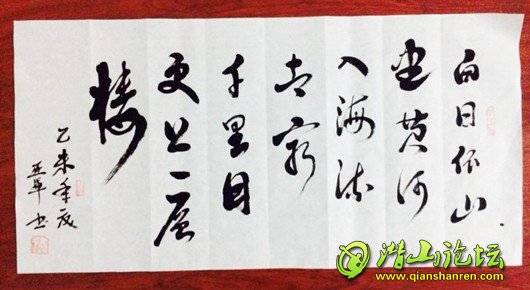 白日依山
尽黄河
入海流
欲穷
千里目
更上一层
楼
乙未年
书
潜山论坛
www.qianshanren.com